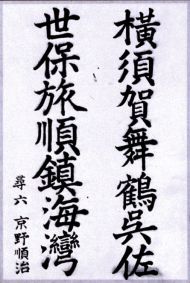 橫須賀舞鶴吳佐
世保旅順鎮海灣
尋六 京野順治